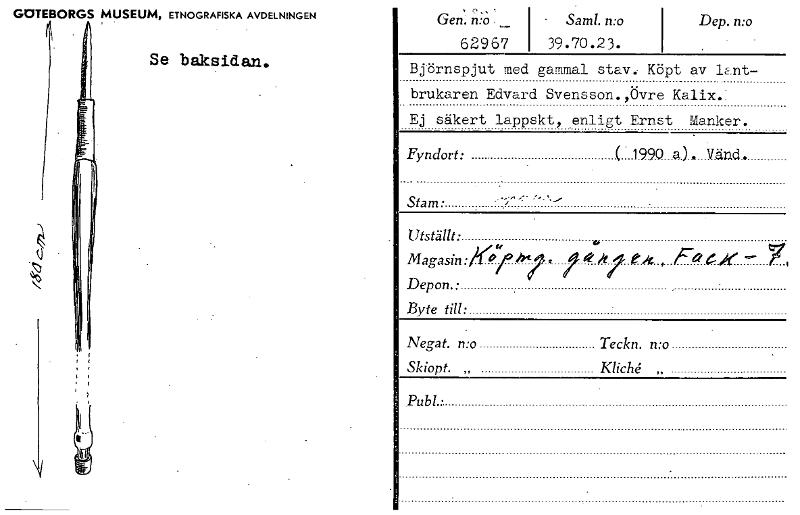 GÖTEBORGS MUSEUM, ETNOGRAFISKA AVDELNINGEN
Se baksidan.
180 cm
Gen. n:o Saml. n:o Dep. n:o
62967 39.70.23.
Björnspjut med gammal stav. Köpt av lant-
brukaren Edvard Svensson.,Övre Kalix.
Ej säkert lappskt, enligt Ernst Manker.
Fyndort: ( 1990 a). Vänd.
Stam:
Utställt:
Magasin: Köpmg. gången. Fack - 7.
Depon.:
Byte till:
Negat. n:o Teckn. n:o
Skiopt. „ Kliché „
Publ.: